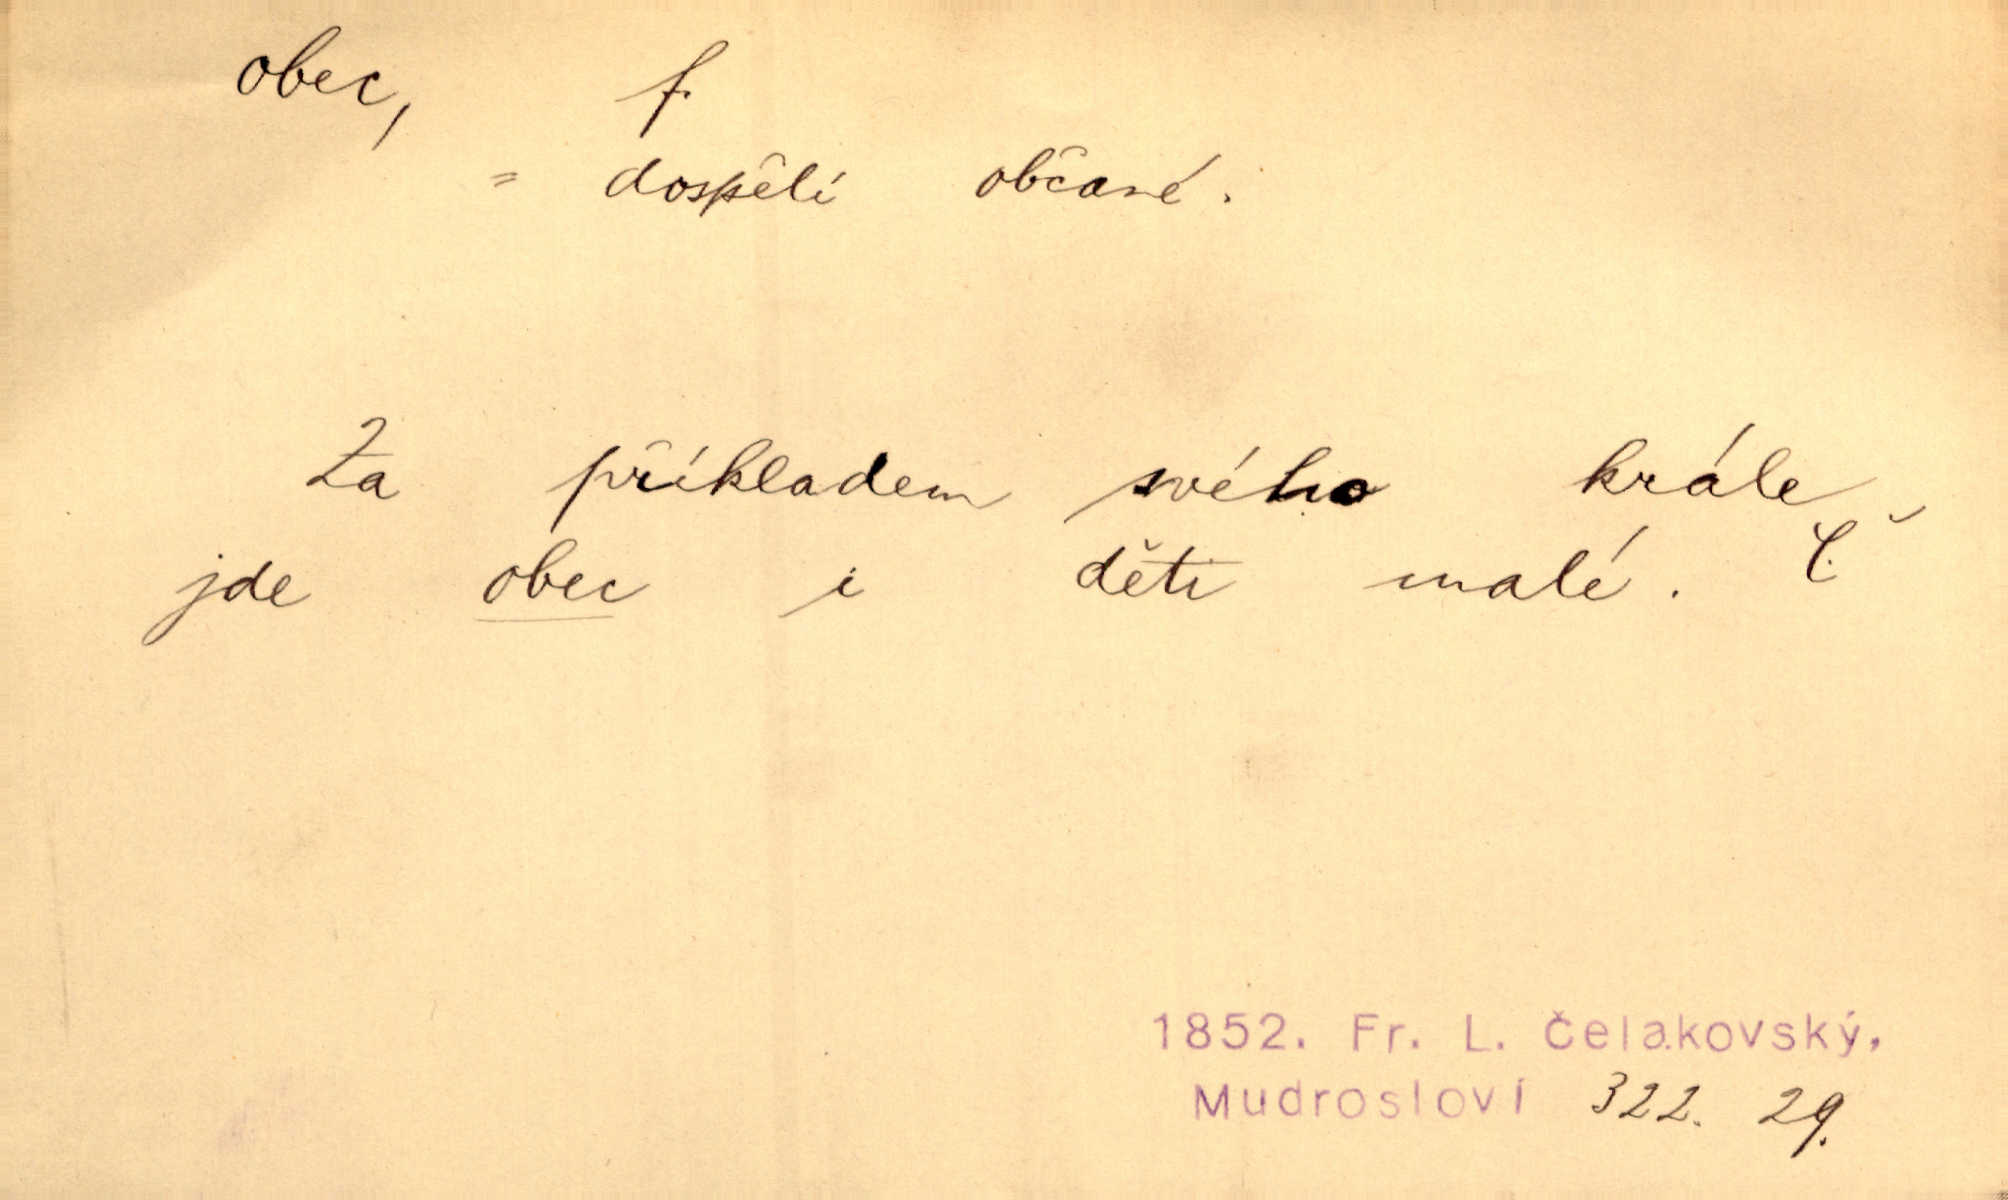 obec, f.
= dospělí občané.
Za příkladem svého krále
jde obec i děti malé. Č.
1852. Fr. L. Čelakovský,
Mudrosloví 322. 29.